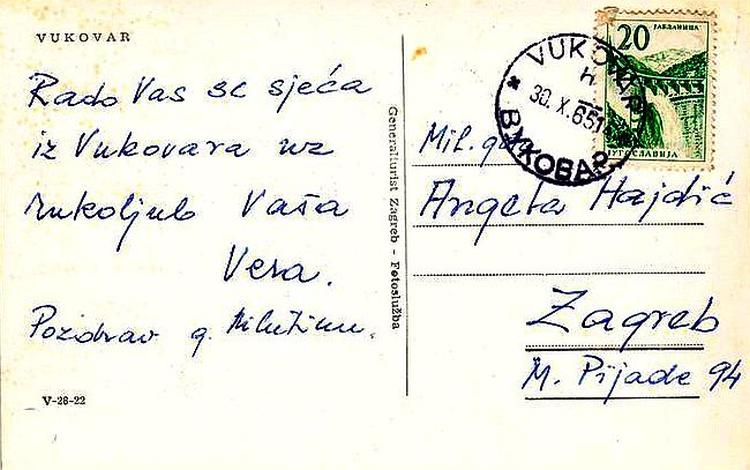 VUKOVAR
Rado Vas se sjeća
iz Vukovara uz
rukoljub Vaša
Vera.
Pozdrav g. Milutinu.
V-26-22
Generalturist Zagreb - Fotoslužba
VUKOVAR
30.X.65
ВУКОВАР
20
ЈАБЛАНИЦА
ЈУГОСЛАВИЈА
Mil. gđa
Angela Hajdić
Zagreb
M. Pijade 94